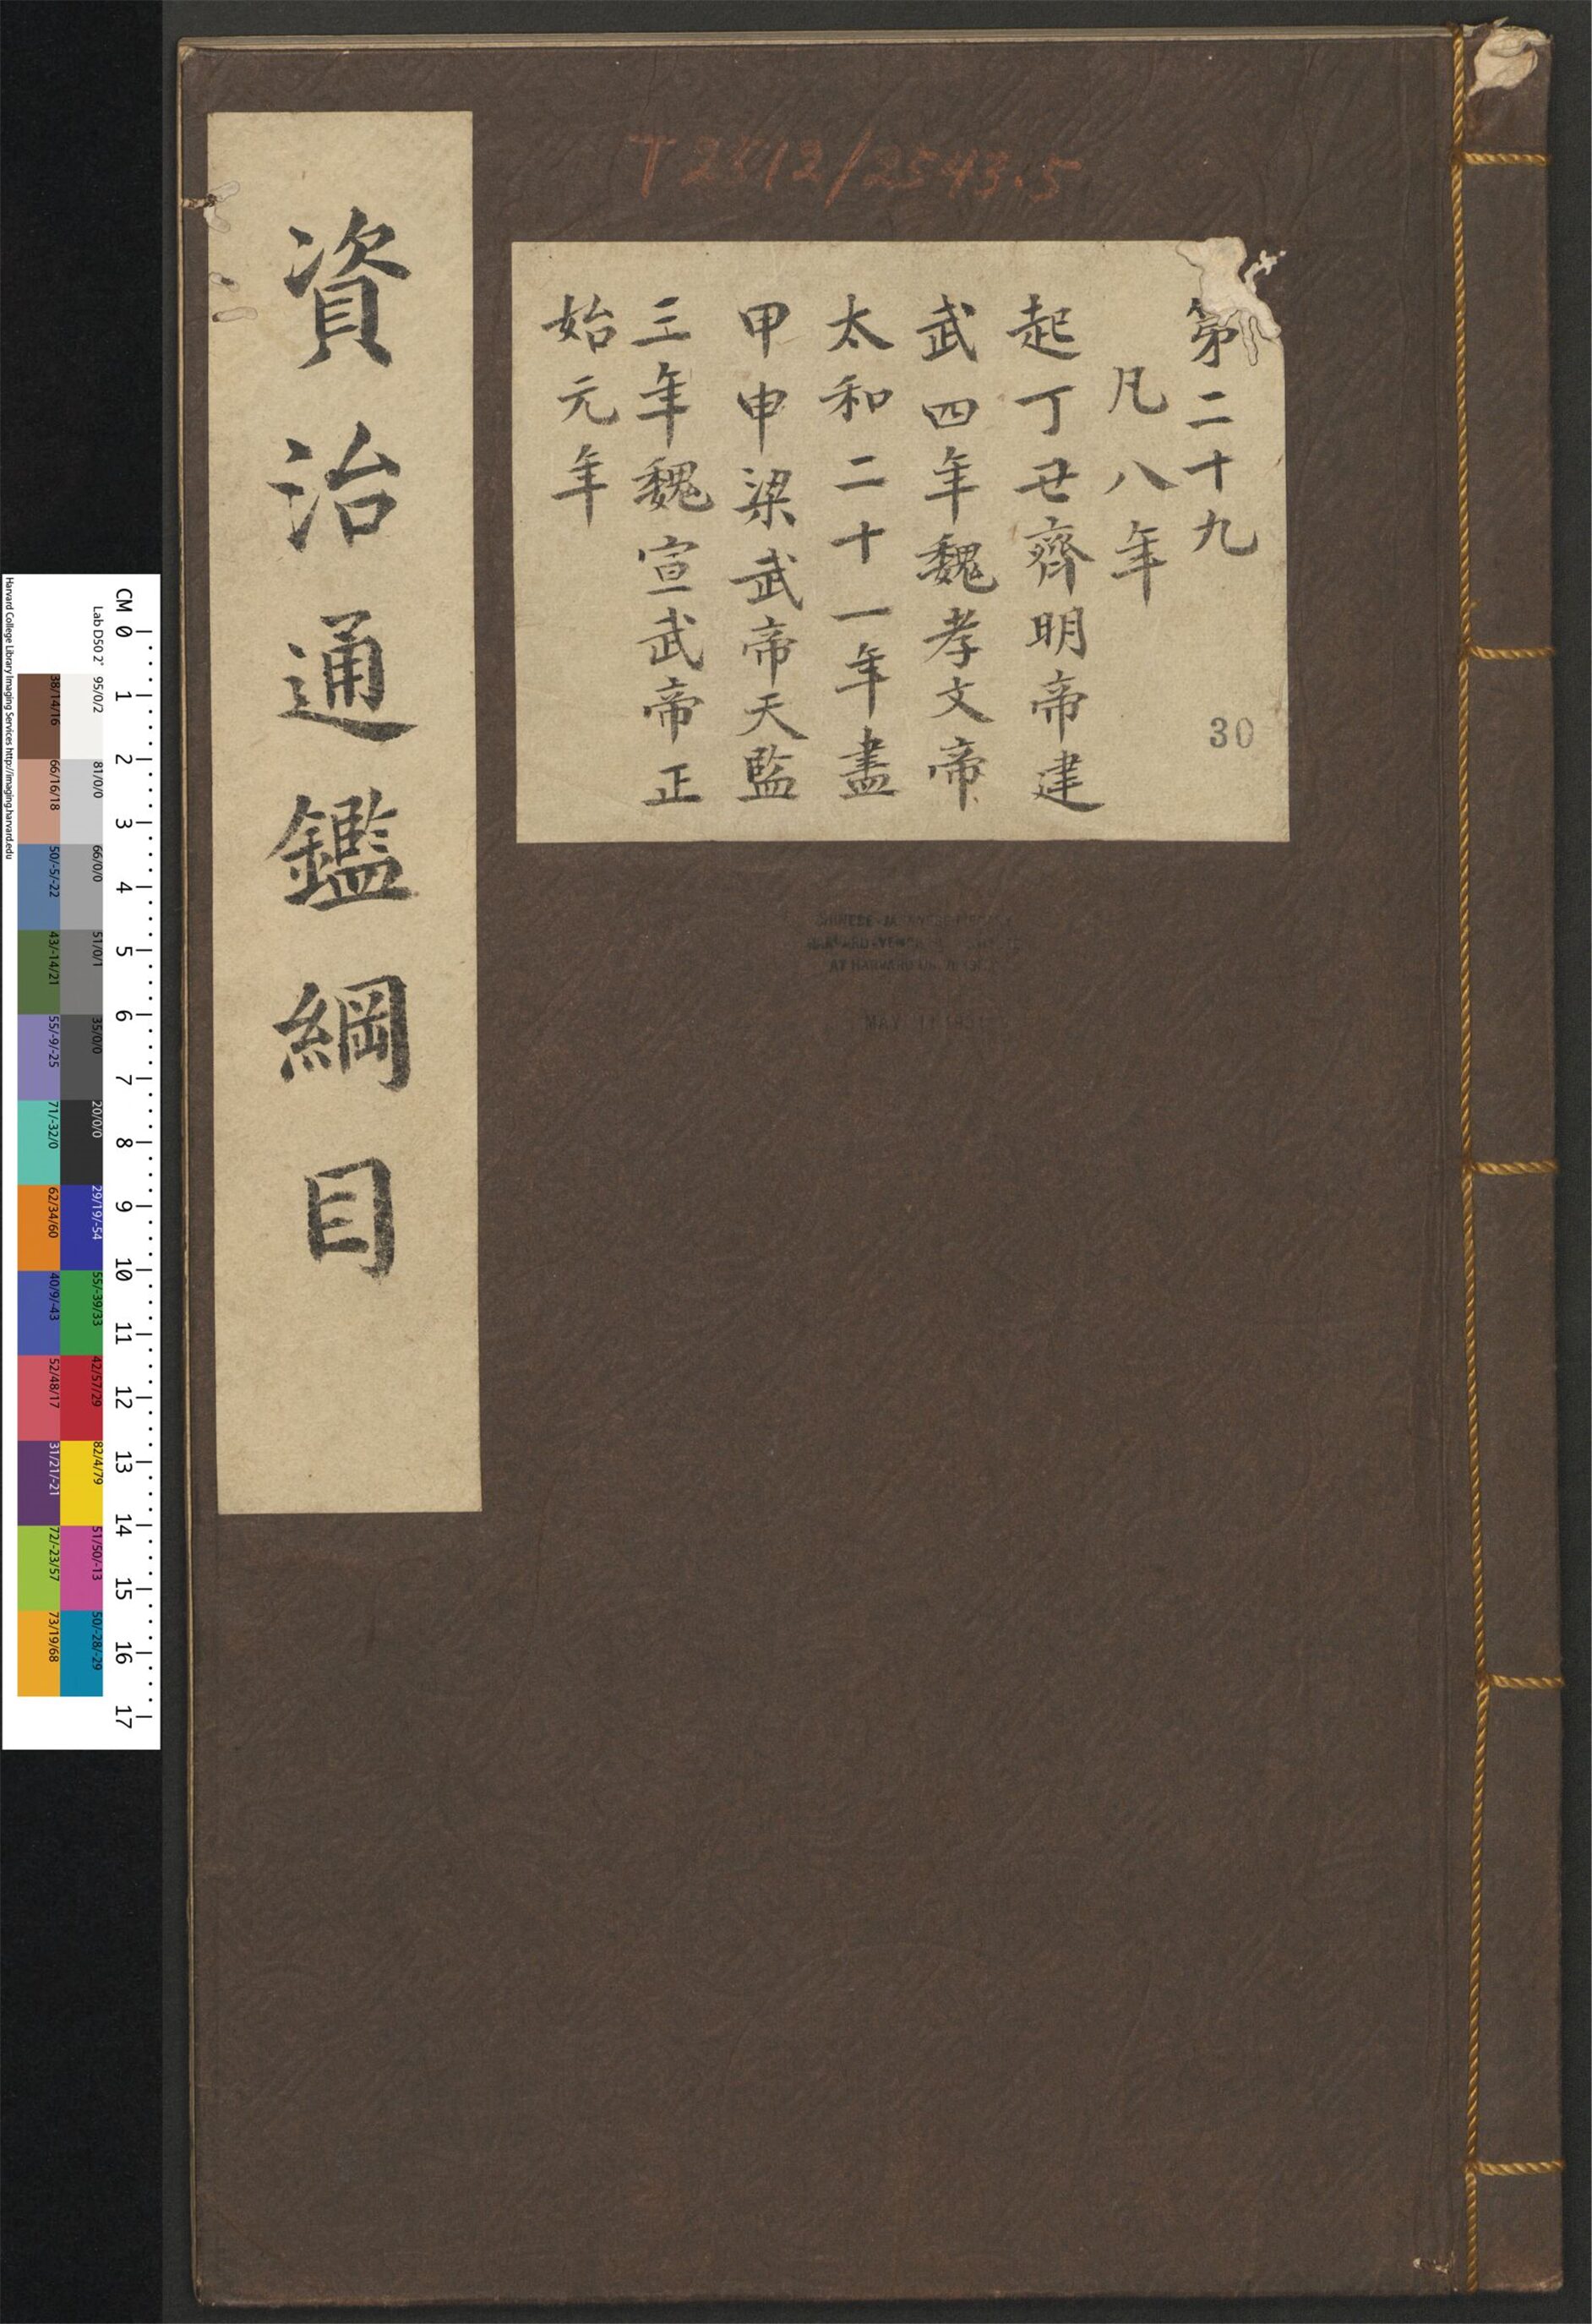 資治通鑑綱目
T2512/2543.5
第二十九
凡八年
起丁丑齊明帝建
武四年魏孝文帝
太和二十一年盡
甲申梁武帝天監
三年魏宣武帝正
始元年
30
CHINESE-JAPANESE LIBRARY
AT HARVARD
MAY
CM 0 1 2 3 4 5 6 7 8 9 10 11 12 13 14 15 16 17
Lab D50 2° 95/0/2 81/0/0 66/0/0 51/0/1 35/0/0 20/0/0 29/19/-54 55/-39/33 42/57/29 82/4/79 51/50/-13 50/-28/-29
38/14/16 66/16/18 50/-5/-22 43/-14/21 55/-9/-25 71/-32/0 62/34/60 40/9/-43 52/48/17 31/21/-21 72/-23/57 73/19/68
Harvard College Library Imaging Services http://imaging.harvard.edu